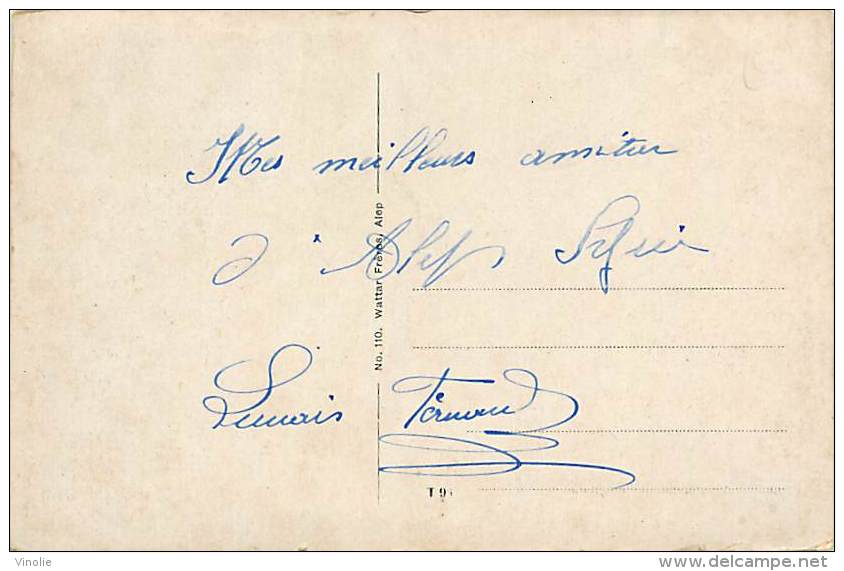 Mes meilleurs amitier
d'Alep Syrie
Fernand
No. 110. Wattar Frères, Alep
T 9
Vinolie
delcampe.net